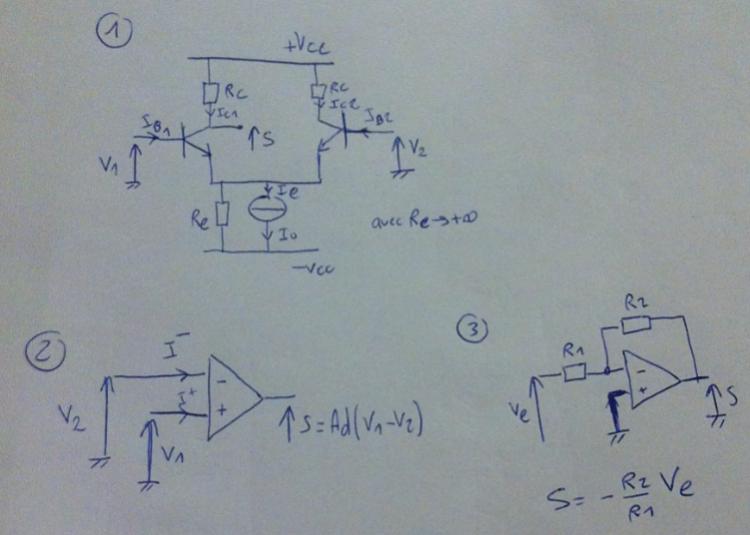 1
+Vcc
Rc
Rc
Ic1
Ic2
IB1
IB2
S
V1
V2
Ie
Re
Io
avec Re→+∞
-Vcc
2
I-
-
I+
+
V2
V1
S=Ad(V1-V2)
3
R2
R1
-
+
Ve
S
S=-R2/R1 Ve